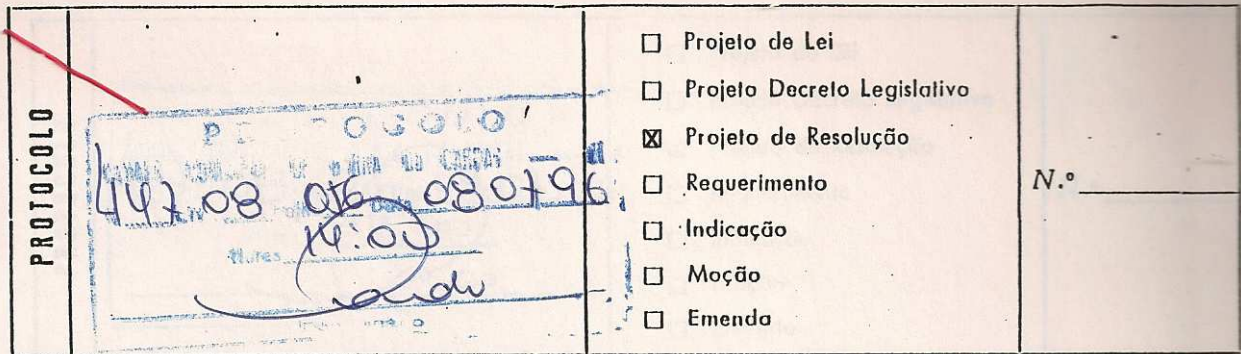 PROTOCOLO
PROTOCOLO
447 08 016 080796
Horas 14:00
☐ Projeto de Lei
☐ Projeto Decreto Legislativo
☒ Projeto de Resolução
☐ Requerimento
☐ Indicação
☐ Moção
☐ Emenda
N.º